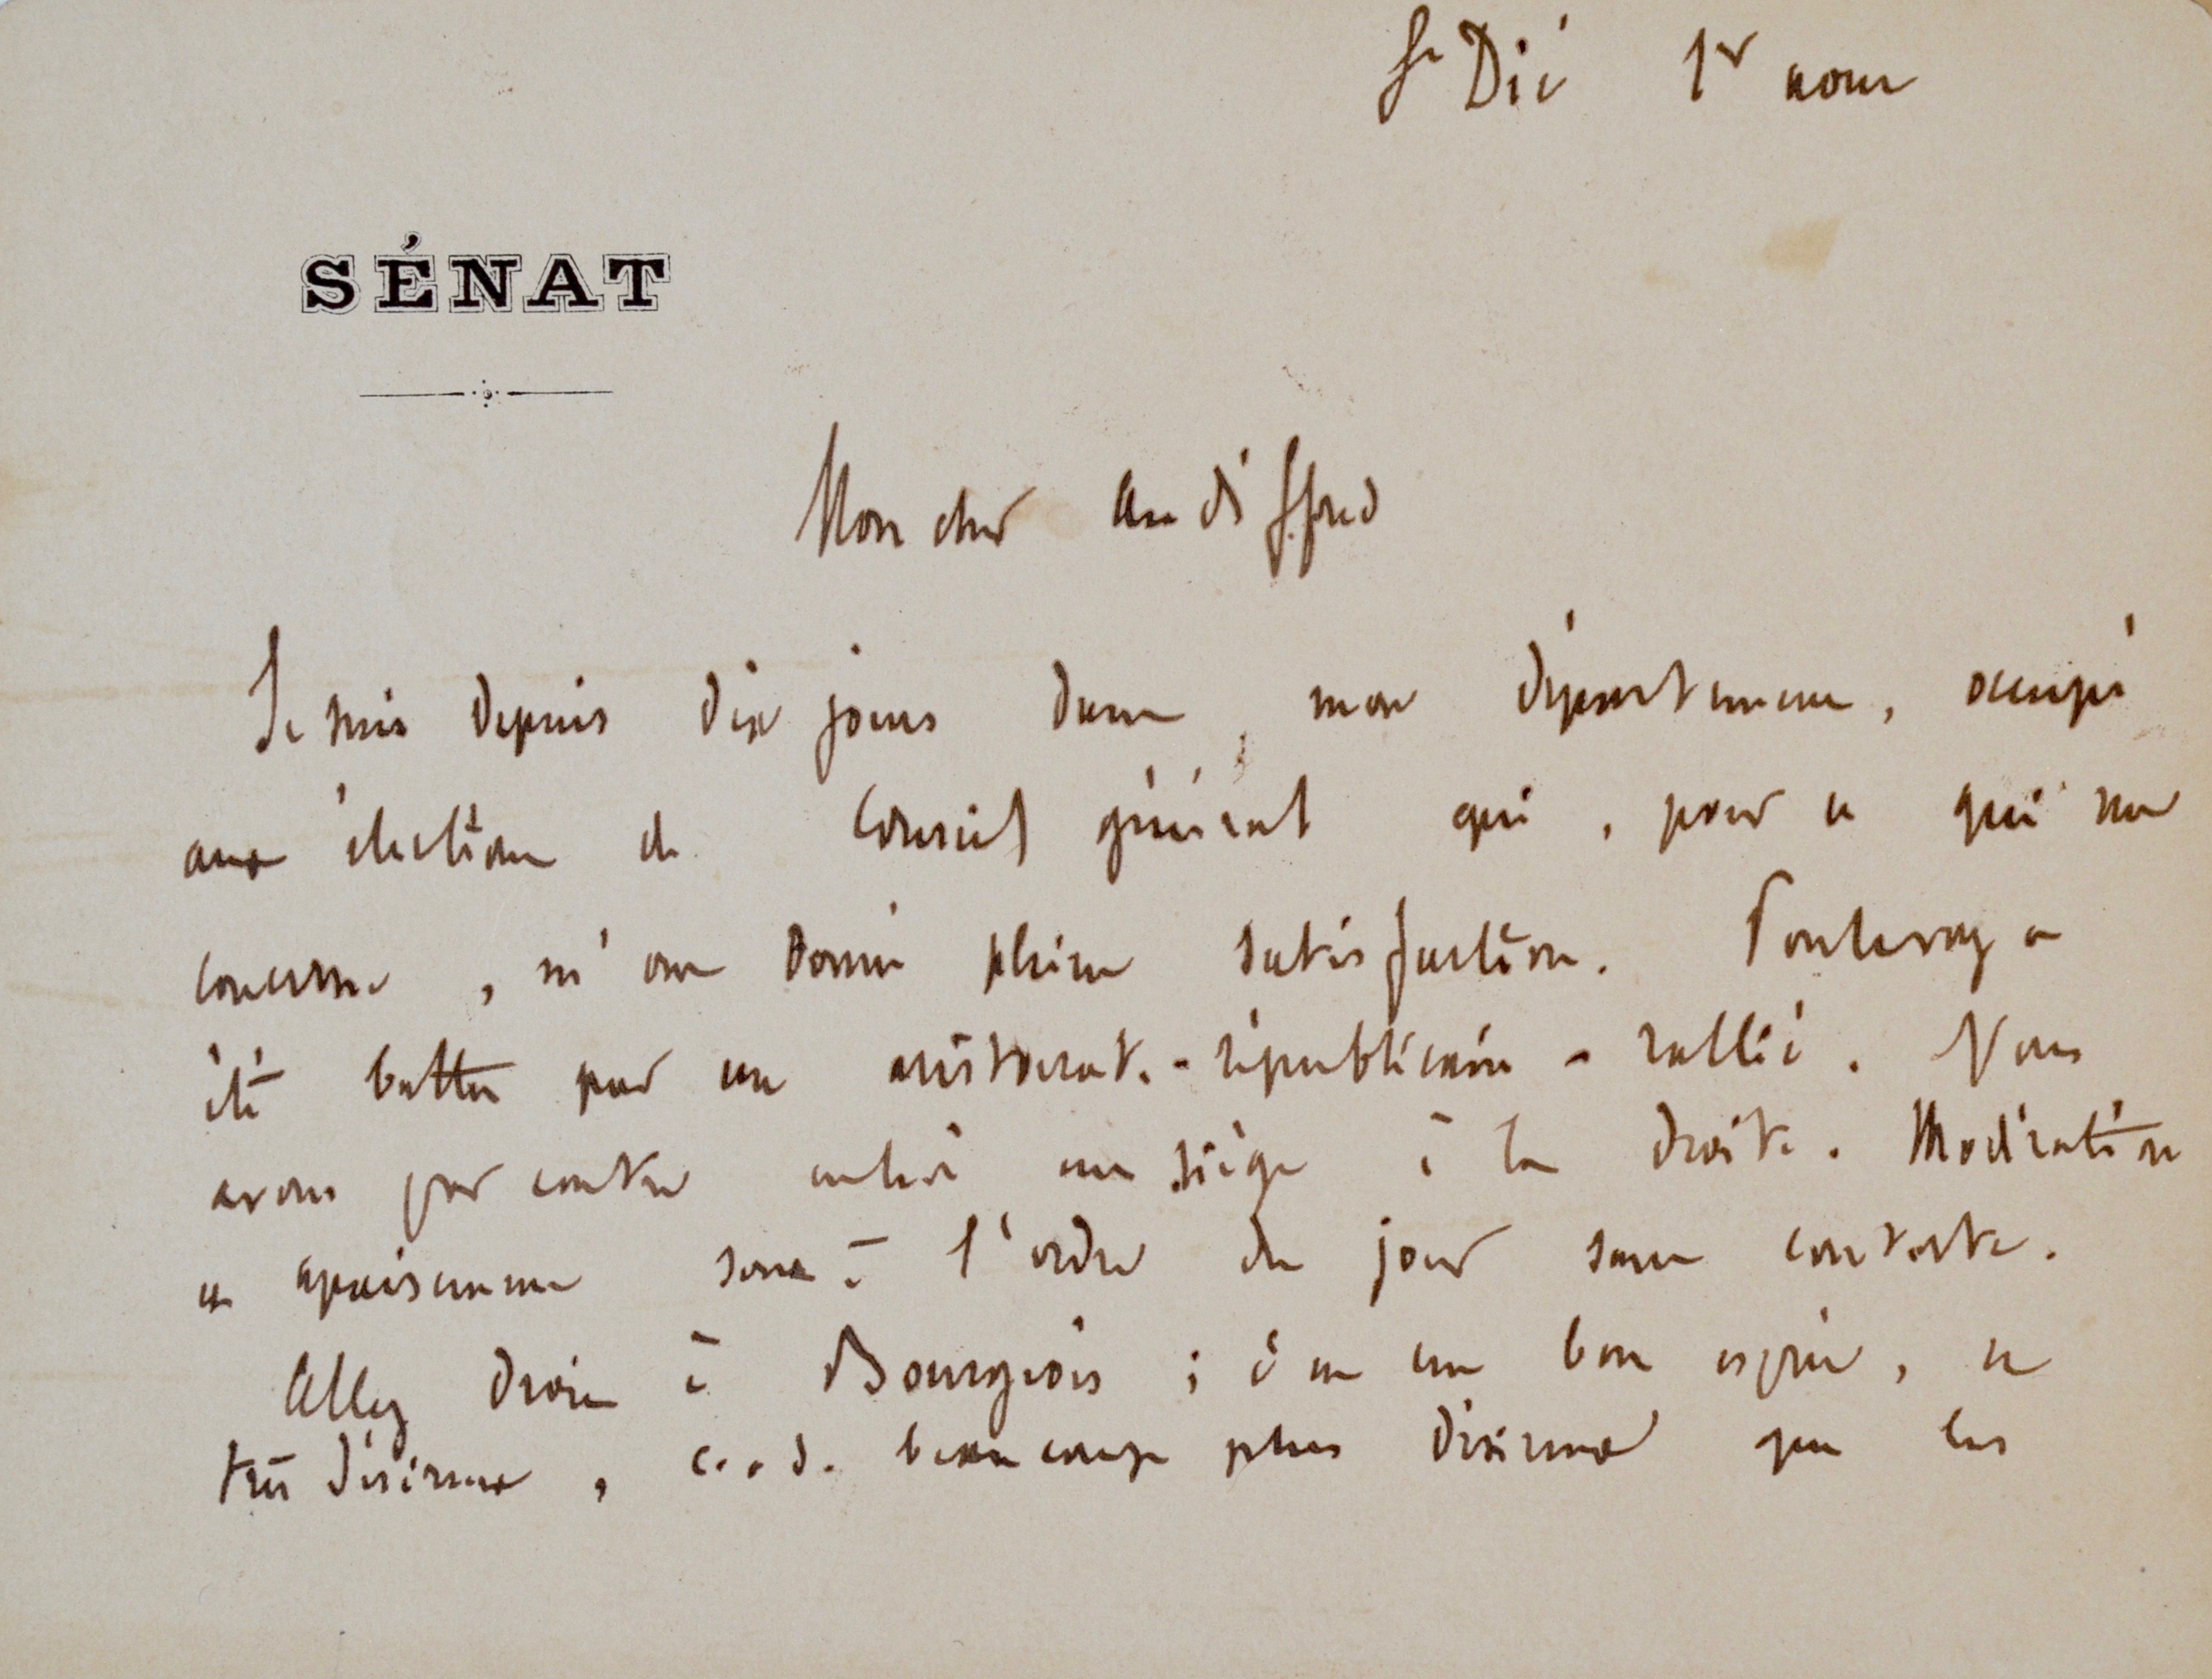 St Dié 1r aout
SÉNAT
Mon cher Audiffred
Je suis depuis dix jours dans mon département, occupé
aux élections du Conseil général qui, pour ce qui me
concerne, m'ont donné pleine satisfaction. Pontevoy a
été battu par un aristocrate-républicain-rallié. Nous
avons par contre enlevé un siège à la droite. Modération
et apaisement sont à l'ordre du jour sans conteste.
Allez droit à Bourgeois ; c'est un bon esprit, et
très désireux, c.a.d. beaucoup plus désireux que les